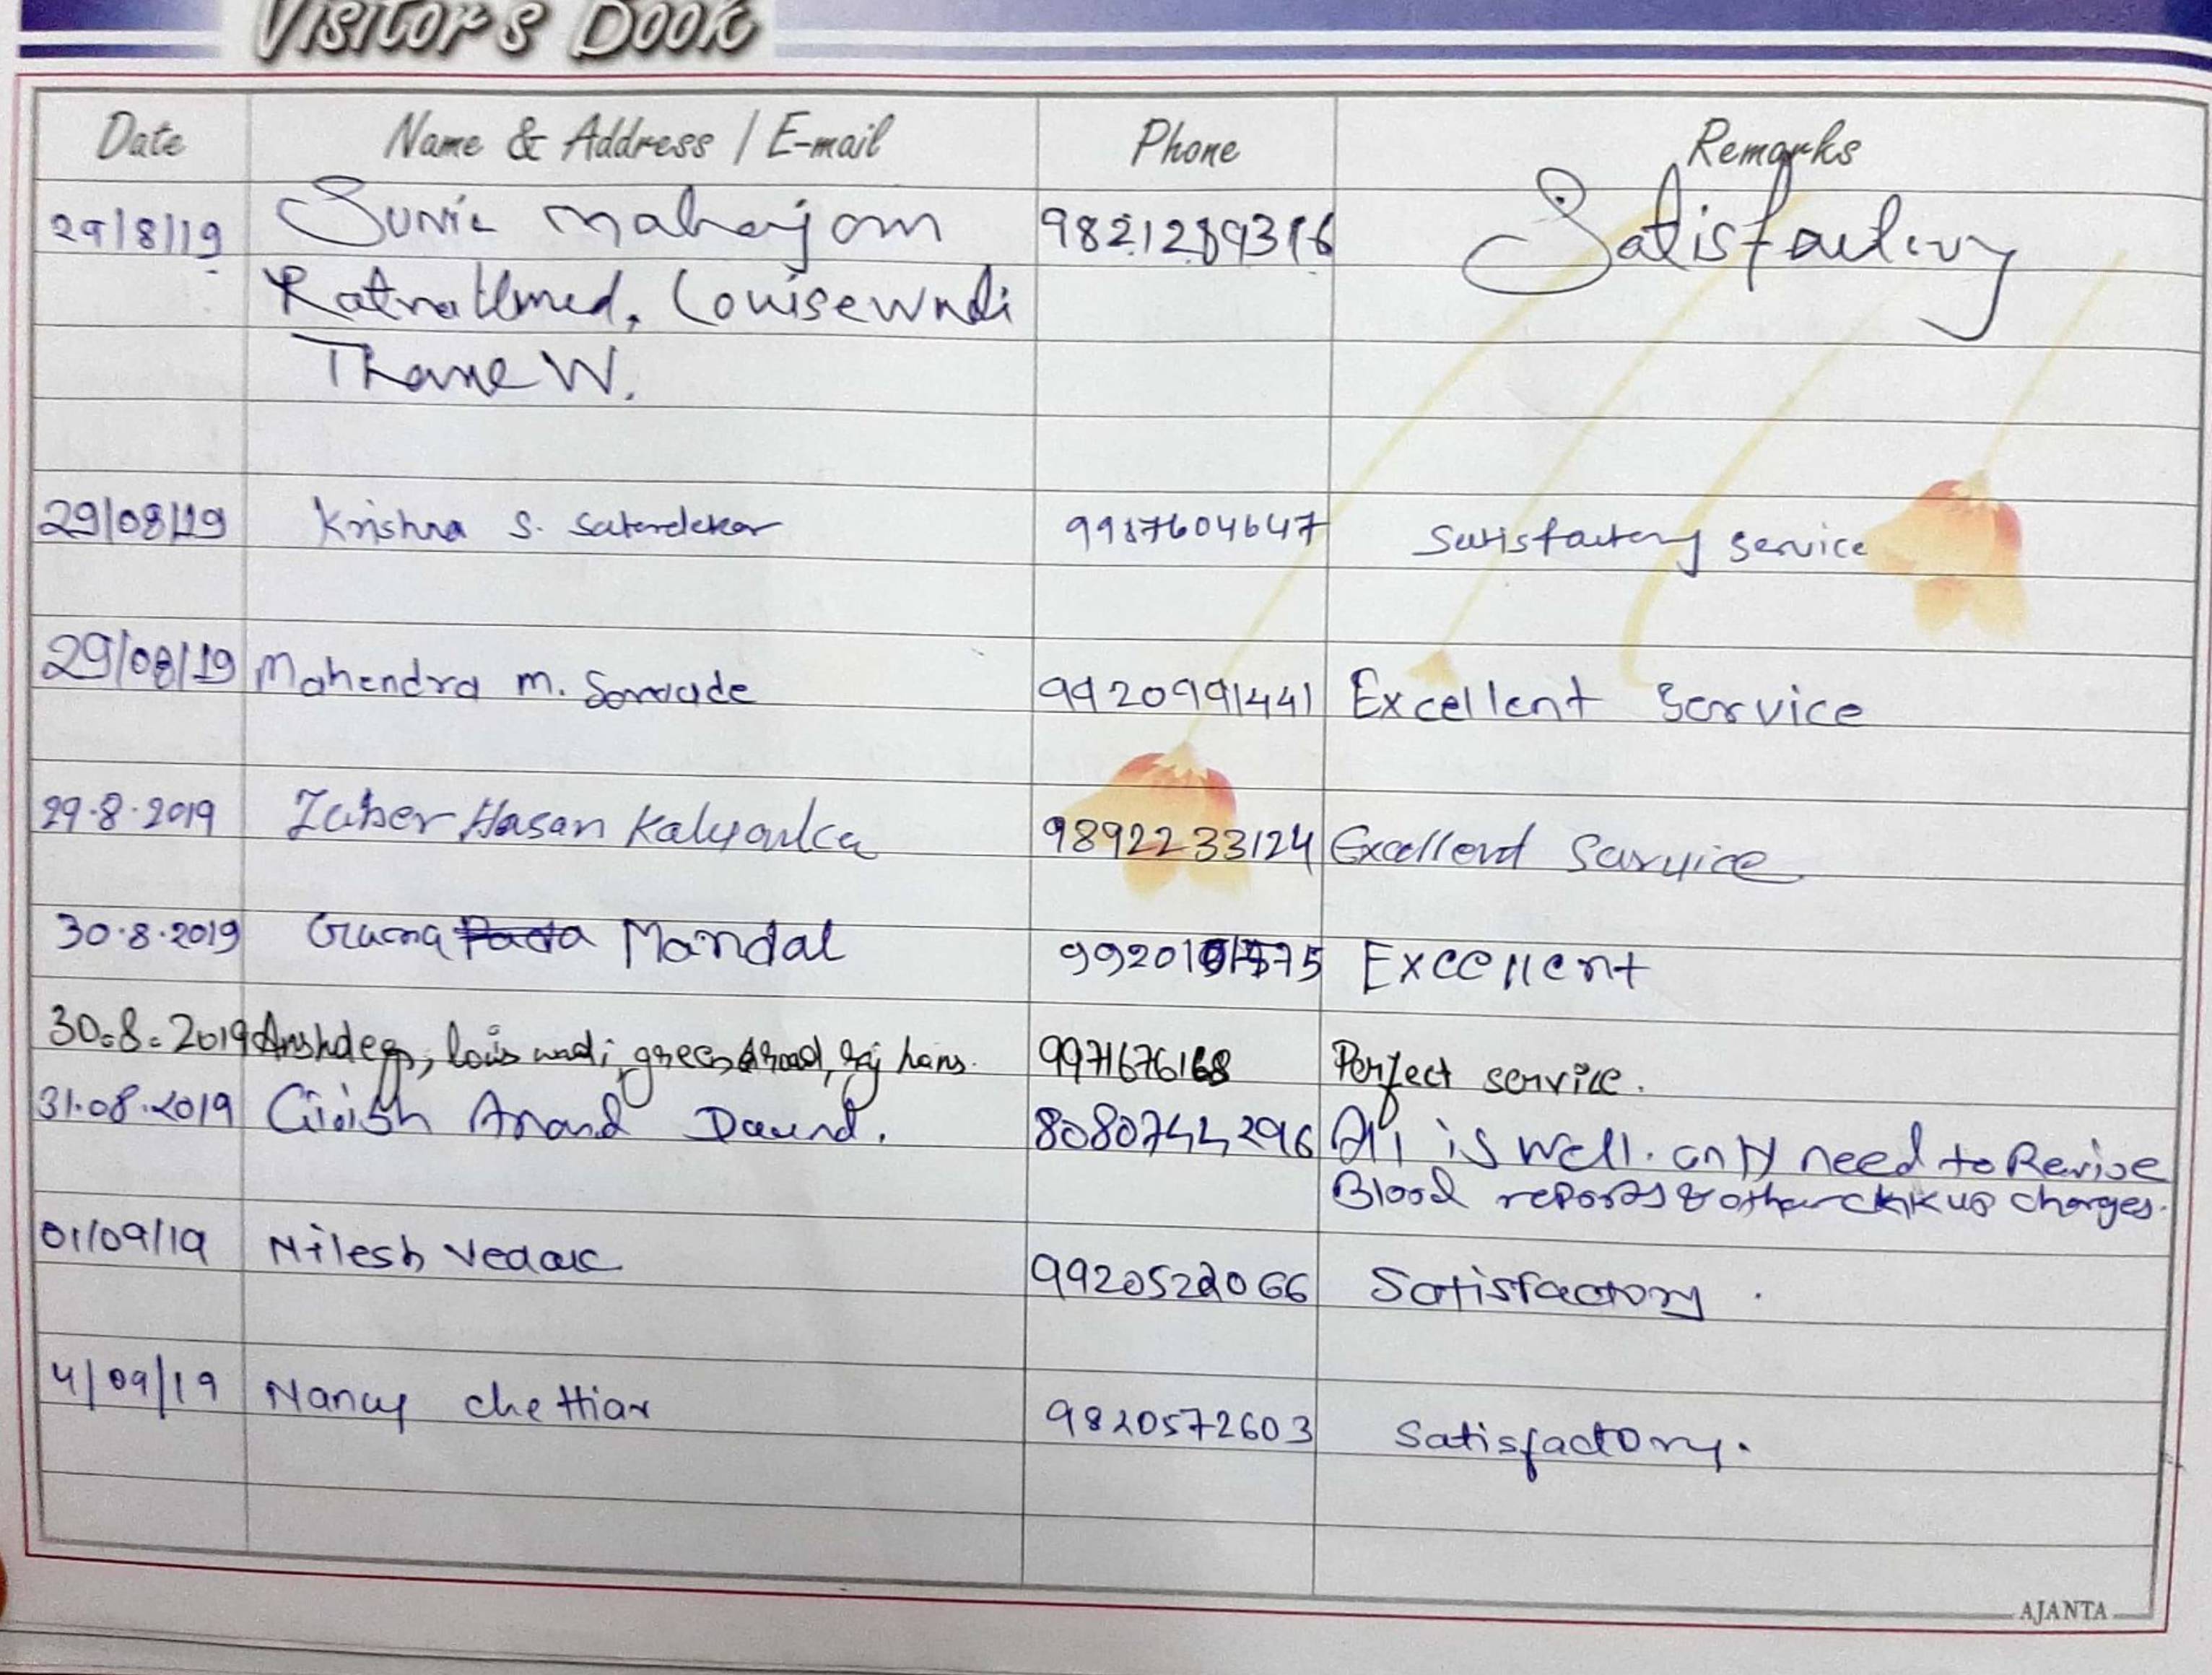 Visitor's Book
Date Name & Address / E-mail Phone Remarks
29/8/19 Sunil mahajan Satisfactory
Louisewadi
Thane W.
29/08/19 Krishna S. 9987604647 Satisfactory service
29/08/19 Mahendra m. 9920991441 Excellent Service
29.8.2019 Zuber Hasan 9892233124 Excellent Service
30.8.2019 Mandal Excellent
30.8.2019 Anshdeep, louis wadi, green road, raj hans. 9971676168 Perfect service.
31.08.2019 Girish Anand Daund. 8080744296 All is well. only need to Revise
Blood reports & other chkup charges.
01/09/19 Nilesh Vedak 9920522066 Satisfactory.
4/09/19 Nancy chettiar 9820572603 Satisfactory.
AJANTA